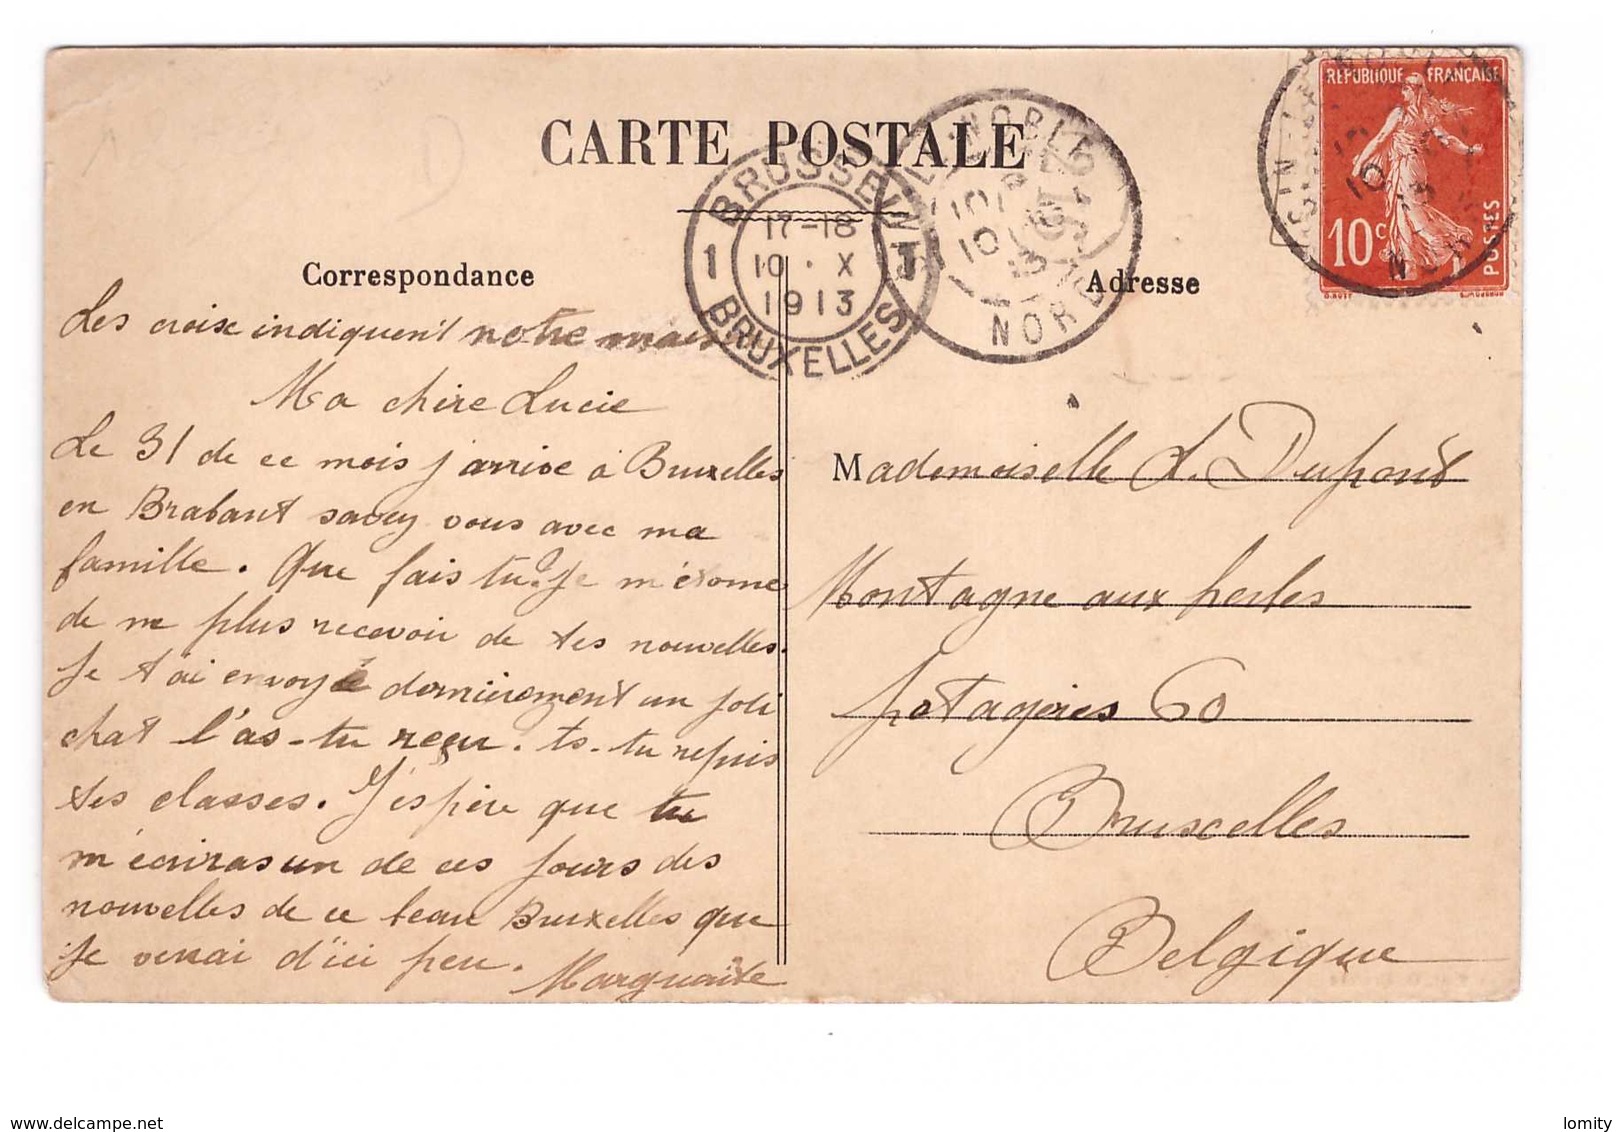 CARTE POSTALE
BRUSSEL
17-18
1 10 · X 1
1913
BRUXELLES
NORD
REPUBLIQUE FRANÇAISE
10c
POSTES
Correspondance
Adresse
Les croix indiquent notre mais
Ma chère Lucie
Le 31 de ce mois j'arrive à Bruxelles
en Brabant savez vous avec ma
famille. Que fais tu? Je m'étonne
de ne plus recevoir de tes nouvelles.
Je t'ai envoyé dernièrement un joli
chat l'as-tu reçu. ts-tu repris
tes classes. J'espère que tu
m'écriras un de ces jours des
nouvelles de ce beau Bruxelles que
je verrai d'ici peu. Marguerite
Mademoiselle L. Dupont
Montagne aux herbes
potagères 60
Bruxelles
Belgique
delcampe.net
lomity